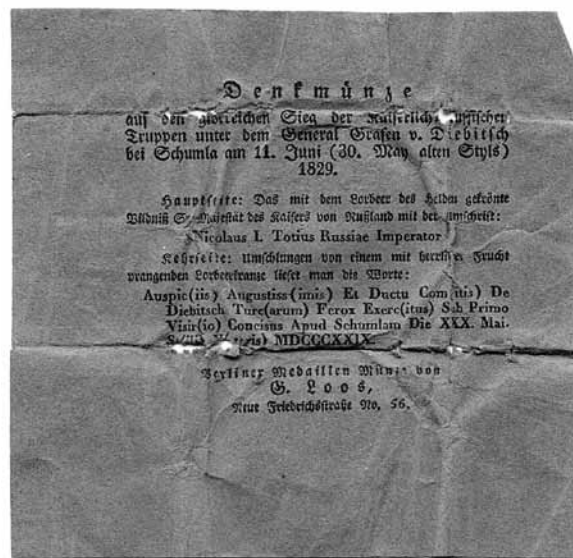 Denkmünze
auf den glorreichen Sieg der Kaiserlich Russischen
Truppen unter dem General Grafen v. Diebitsch
bei Schumla am 11. Juni (30. May alten Styls)
1829.
Hauptseite: Das mit dem Lorbeer des Helden gekrönte
Bildniß Sr. Majestät des Kaisers von Rußland mit der Umschrift:
Nicolaus I. Totius Russiae Imperator
Kehrseite: Umschlungen von einem mit herrlicher Frucht
prangenden Lorbeerkranze lieset man die Worte:
Auspic(iis) Augustiss(imis) Et Ductu Com(itis) De
Diebitsch Turc(arum) Ferox Exerc(itus) Sub Primo
Visir(io) Concisus Apud Schumlam Die XXX. Mai.
MDCCCXXIX.
Berliner Medaillen Münze von
G. Loos,
Neue Friedrichsstraße No. 56.